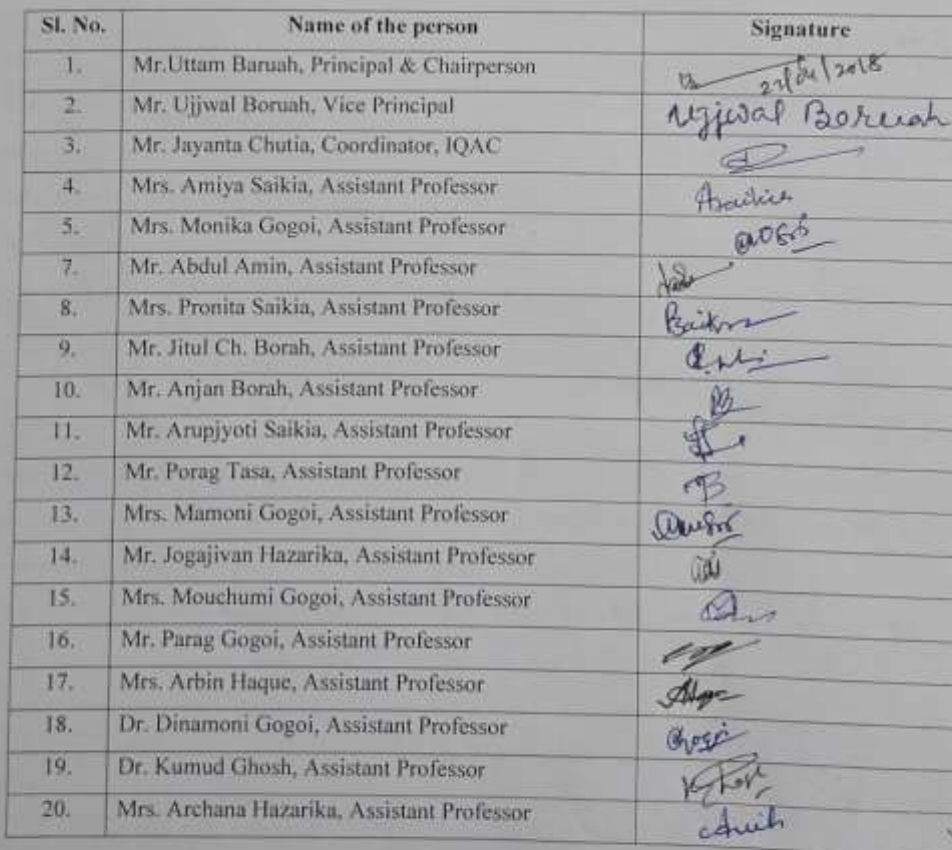 Sl. No. Name of the person Signature
1. Mr.Uttam Baruah, Principal & Chairperson
2. Mr. Ujjwal Boruah, Vice Principal Ujjwal Boruah
3. Mr. Jayanta Chutia, Coordinator, IQAC
4. Mrs. Amiya Saikia, Assistant Professor
5. Mrs. Monika Gogoi, Assistant Professor
7. Mr. Abdul Amin, Assistant Professor
8. Mrs. Pronita Saikia, Assistant Professor
9. Mr. Jitul Ch. Borah, Assistant Professor
10. Mr. Anjan Borah, Assistant Professor
11. Mr. Arupjyoti Saikia, Assistant Professor
12. Mr. Porag Tasa, Assistant Professor
13. Mrs. Mamoni Gogoi, Assistant Professor
14. Mr. Jogajivan Hazarika, Assistant Professor
15. Mrs. Mouchumi Gogoi, Assistant Professor
16. Mr. Parag Gogoi, Assistant Professor
17. Mrs. Arbin Haque, Assistant Professor
18. Dr. Dinamoni Gogoi, Assistant Professor
19. Dr. Kumud Ghosh, Assistant Professor
20. Mrs. Archana Hazarika, Assistant Professor